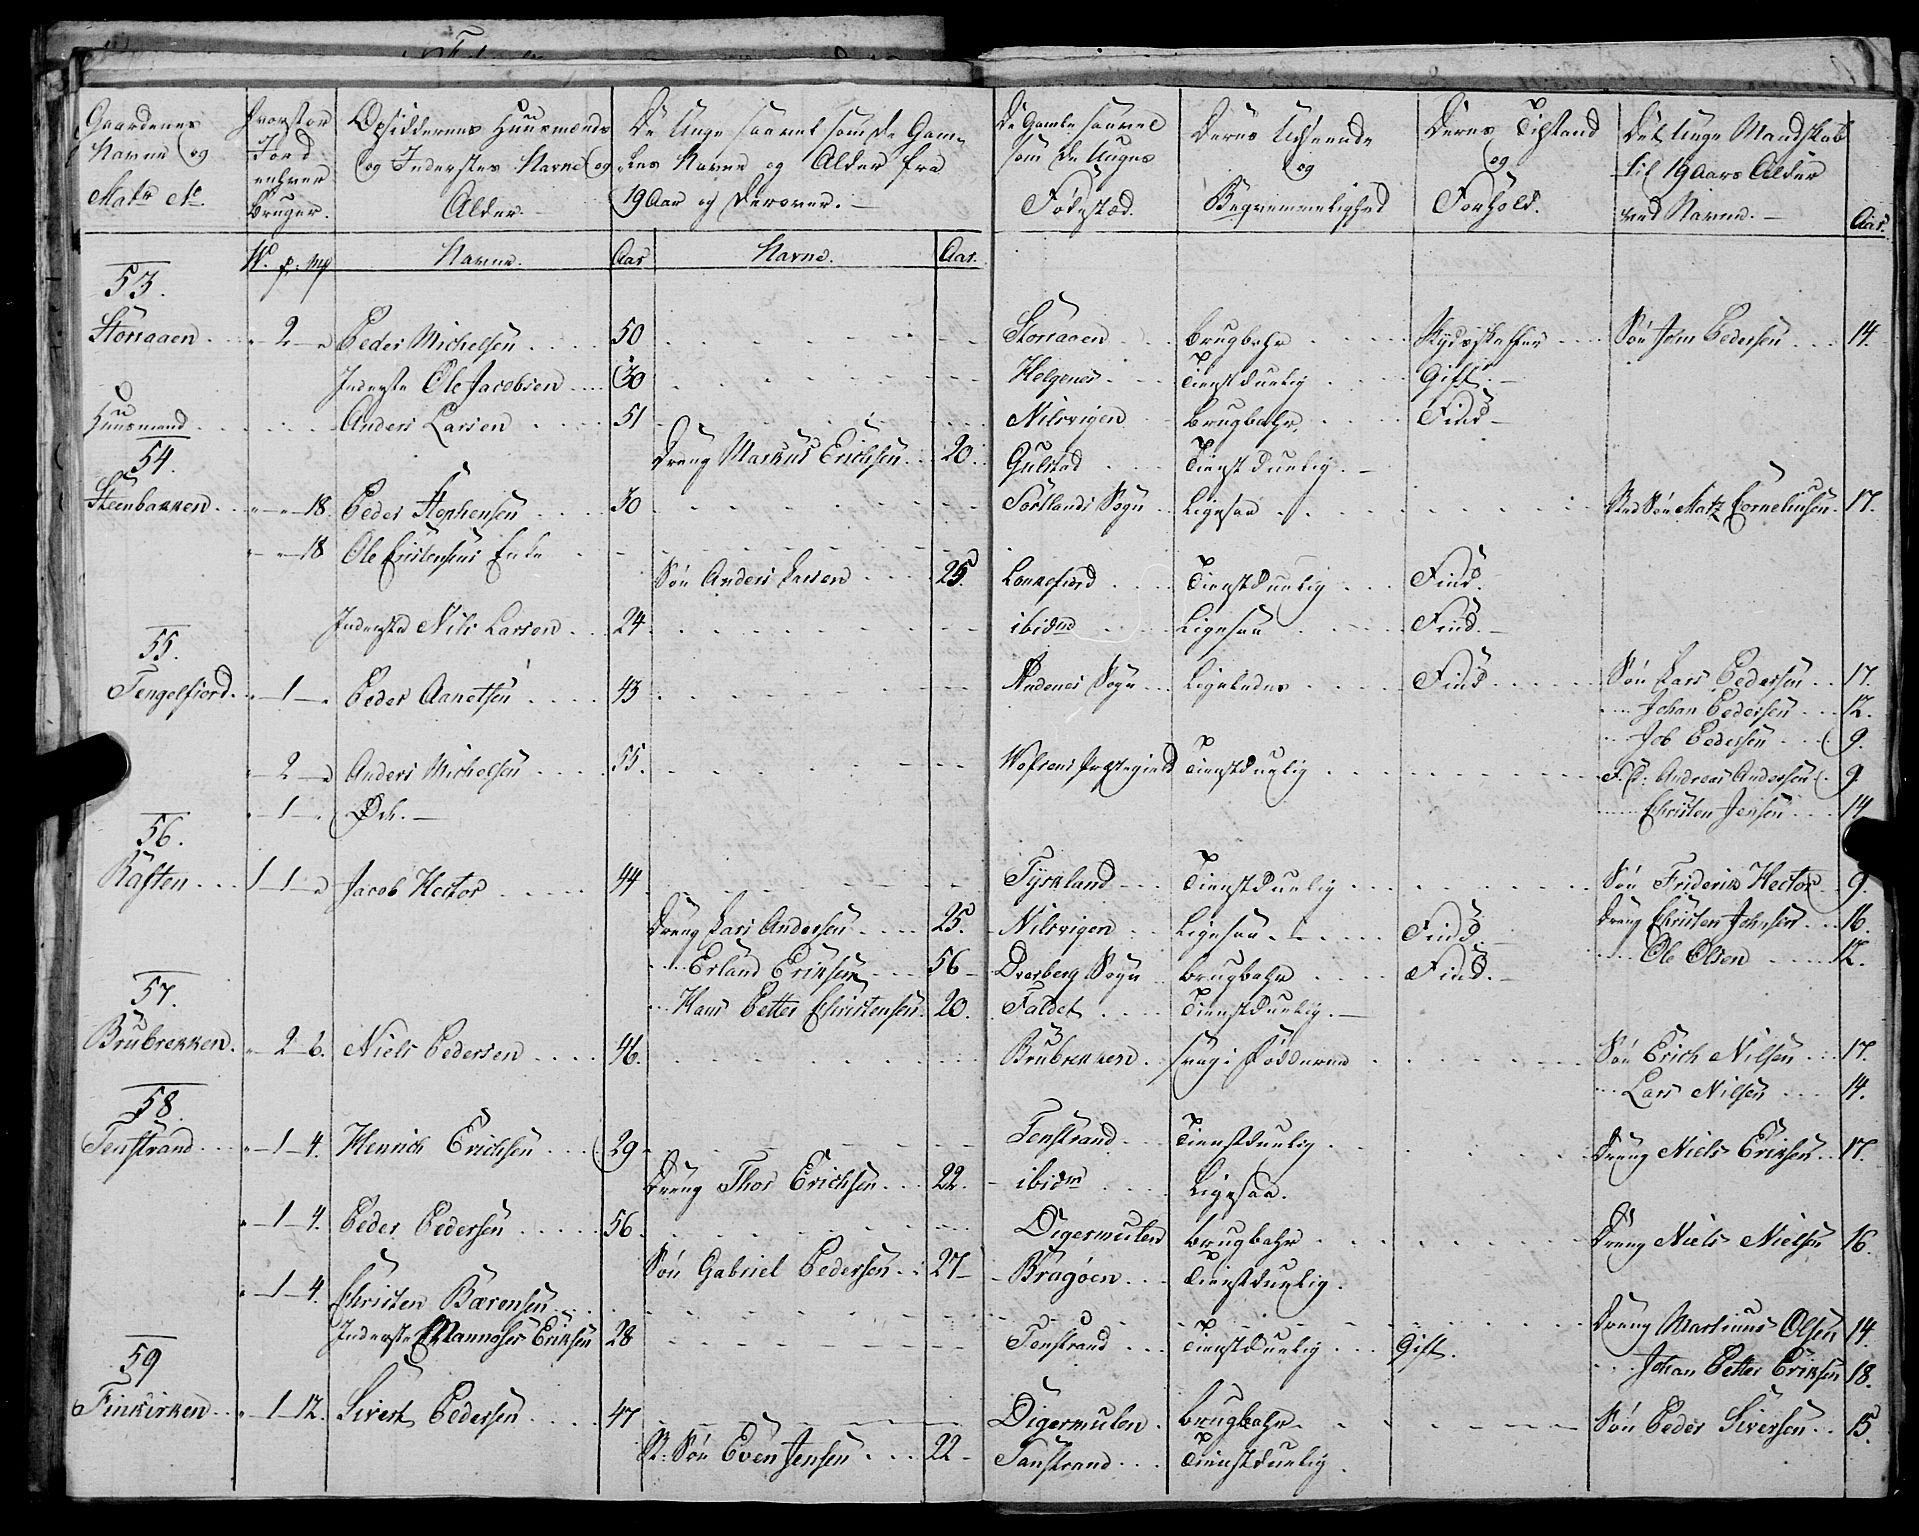 Gaardenes Navne og Matr No.
Hvorstor Jord enhver Bruger.
Opsiddernes Huusmænds og Inderstes Navne og Alder.
De Unge saavel som de Gamles Navne og Alder fra 19 Aar og derover.
De Gamle saavel som de Unges Fødested.
Deres Udseende og Beqvemmelighed
Deres Tilstand og Forhold.
Det unge Mandskab til 19 Aars Alder ved Navne.
Aar.
W. p. mk Navne. Aar Navne. Aar.
53.
Storaaen 2 Peder Michelsen 50 Storaaen brugbahr Skydsskaffer Søn Jens Pedersen 14.
Inderste Ole Jacobsen 30 Helgenes Tienstduelig Gift.
Huusmand Anders Larsen 51 Nilsvigen brugbahr. Find
Dreng Markus Erichsen 20. Gulstad Tienstduelig.
54.
Steenbakken 18. Peder Stephensen 30 Sortlands Sogn Ligesaa Sted Søn Matz Corneliusen. 17.
18 Ole Cristensens Enke
Søn Anders Larsen 25. Lonkefiord Tienstduelig Find.
Inderste Nils Larsen 24 ibidm Ligesaa Find.
55.
Tengelfiord. 1 Peder Aanetsen 43 Andenes Sogn Ligeledes Find Søn Lars Pedersen 17.
Johan Pedersen 12.
Job Pedersen 9.
2 Anders Michelsen 55. Ofotens Præstegield Tienstduelig F. S: Andreas Andersen 9
1 Øde. Christen Jensen 14
56.
Raften 1 1 Jacob Hector 44 Tyskland Tienstduelig Søn Friderik Hector 9.
Dreng Lars Andersen 25. Nilsvigen Ligesaa Find. Dreng Christen Johnsen 16.
Erland Eriksen 56 Dverberg Sogn brugbahr Find. Ole Olsen 12.
Hans Petter Christensen 20. Faldet Tienstduelig.
57.
Brubrekken. 2 6. Niels Pedersen 46. Brubrekken svag i Fødderne Søn Erich Nilsen 17.
Lars Nilsen 14.
58.
Tenstrand 1 4. Henrich Erichsen 29 Tenstrand Tienstduelig Dreng Niels Eriksen 17.
Dreng Thor Erichsen 22. ibidm Ligesaa.
1 4. Peder Pedersen 56. Digermulen brugbahr Dreng Niels Nielsen 16.
Søn Gabriel Pedersen 27 Bragøen Tienstduelig.
1 4. Christen Bærensen Dreng Martinus Olsen 14.
Inderste Mannases Eriksen 28 Tenstrand Tienstduelig Gift. Johan Petter Eriksen 18.
59
Finkirken 1 12. Sivert Pedersen 47 Digermulen brugbahr Søn Peder Siversen 15.
St: Søn Even Jensen 22 Tanstrand Tienstduelig.